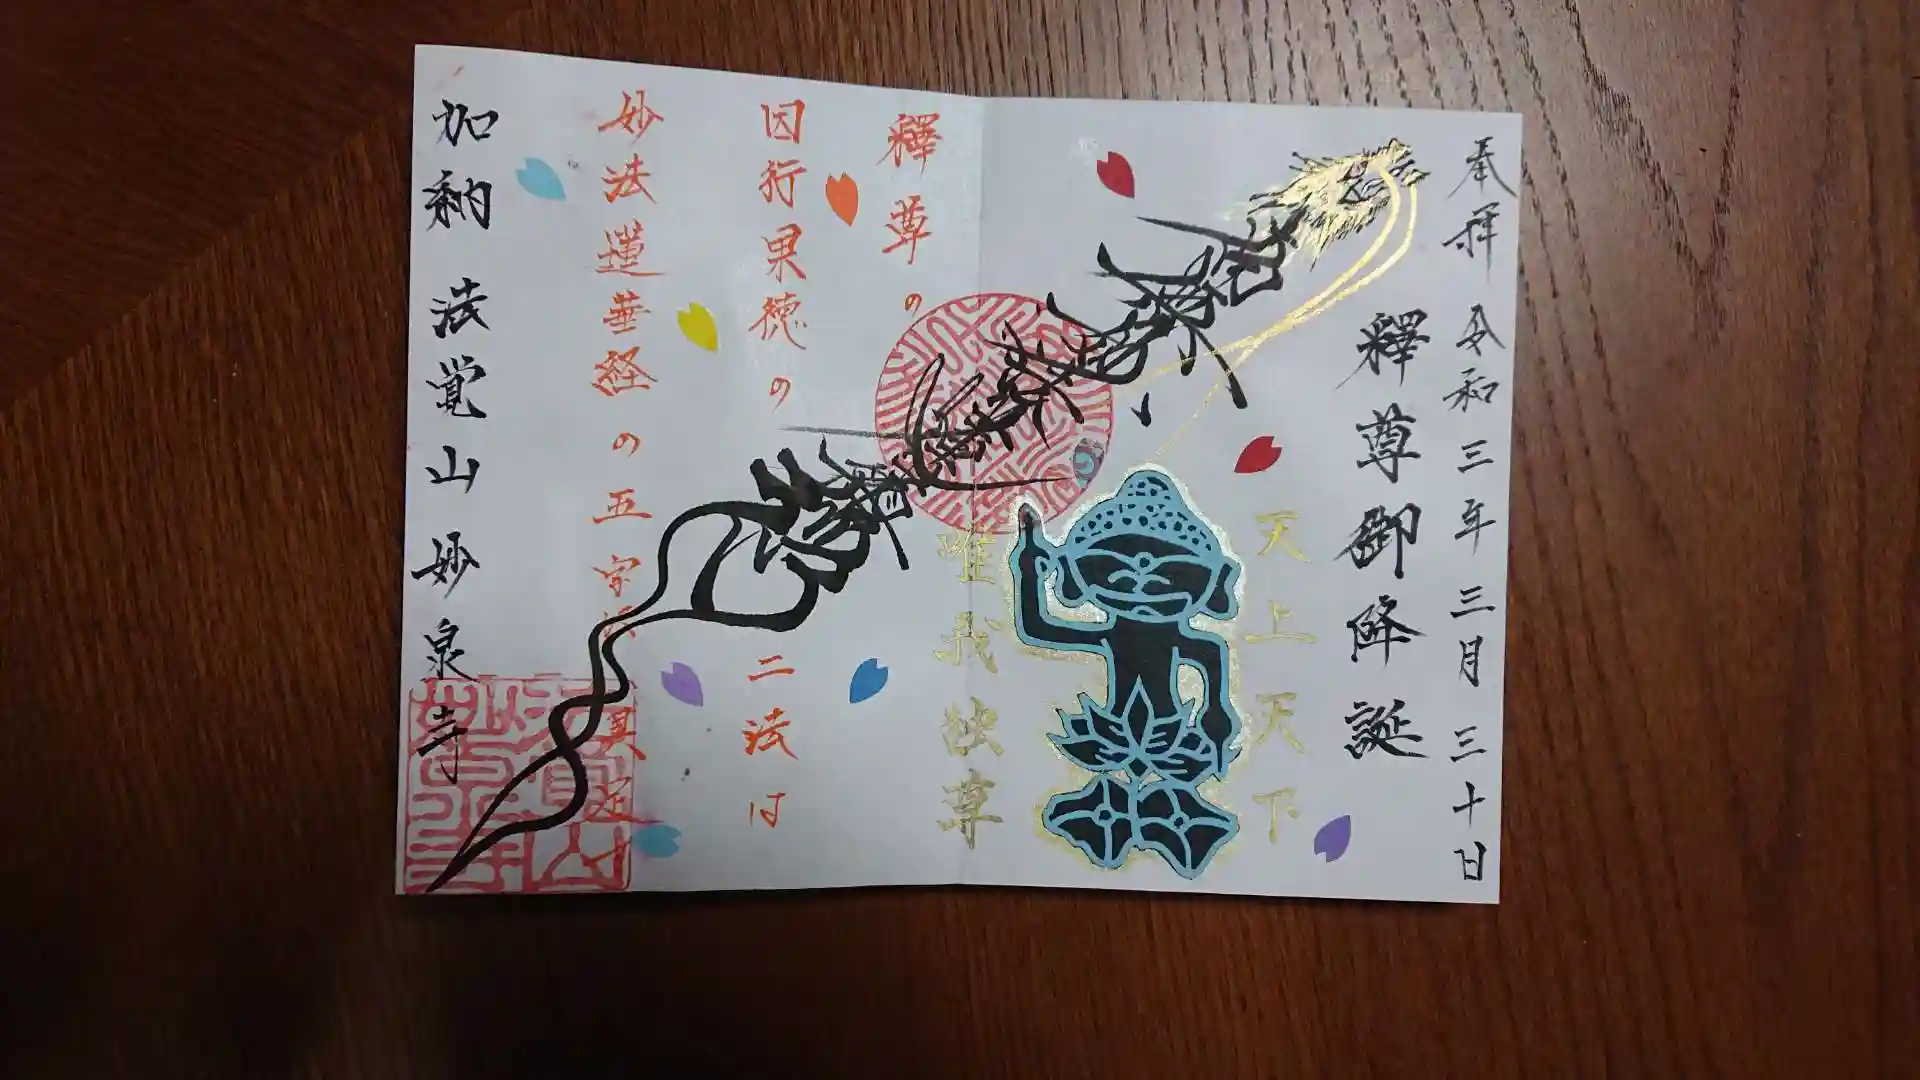 奉拝 令和三年 三月 三十日
釋尊御降誕
天上天下
唯我独尊
釋尊の
因行果徳の 二法は
妙法蓮華経の五字に 具足す
加納 法覚山 妙泉寺